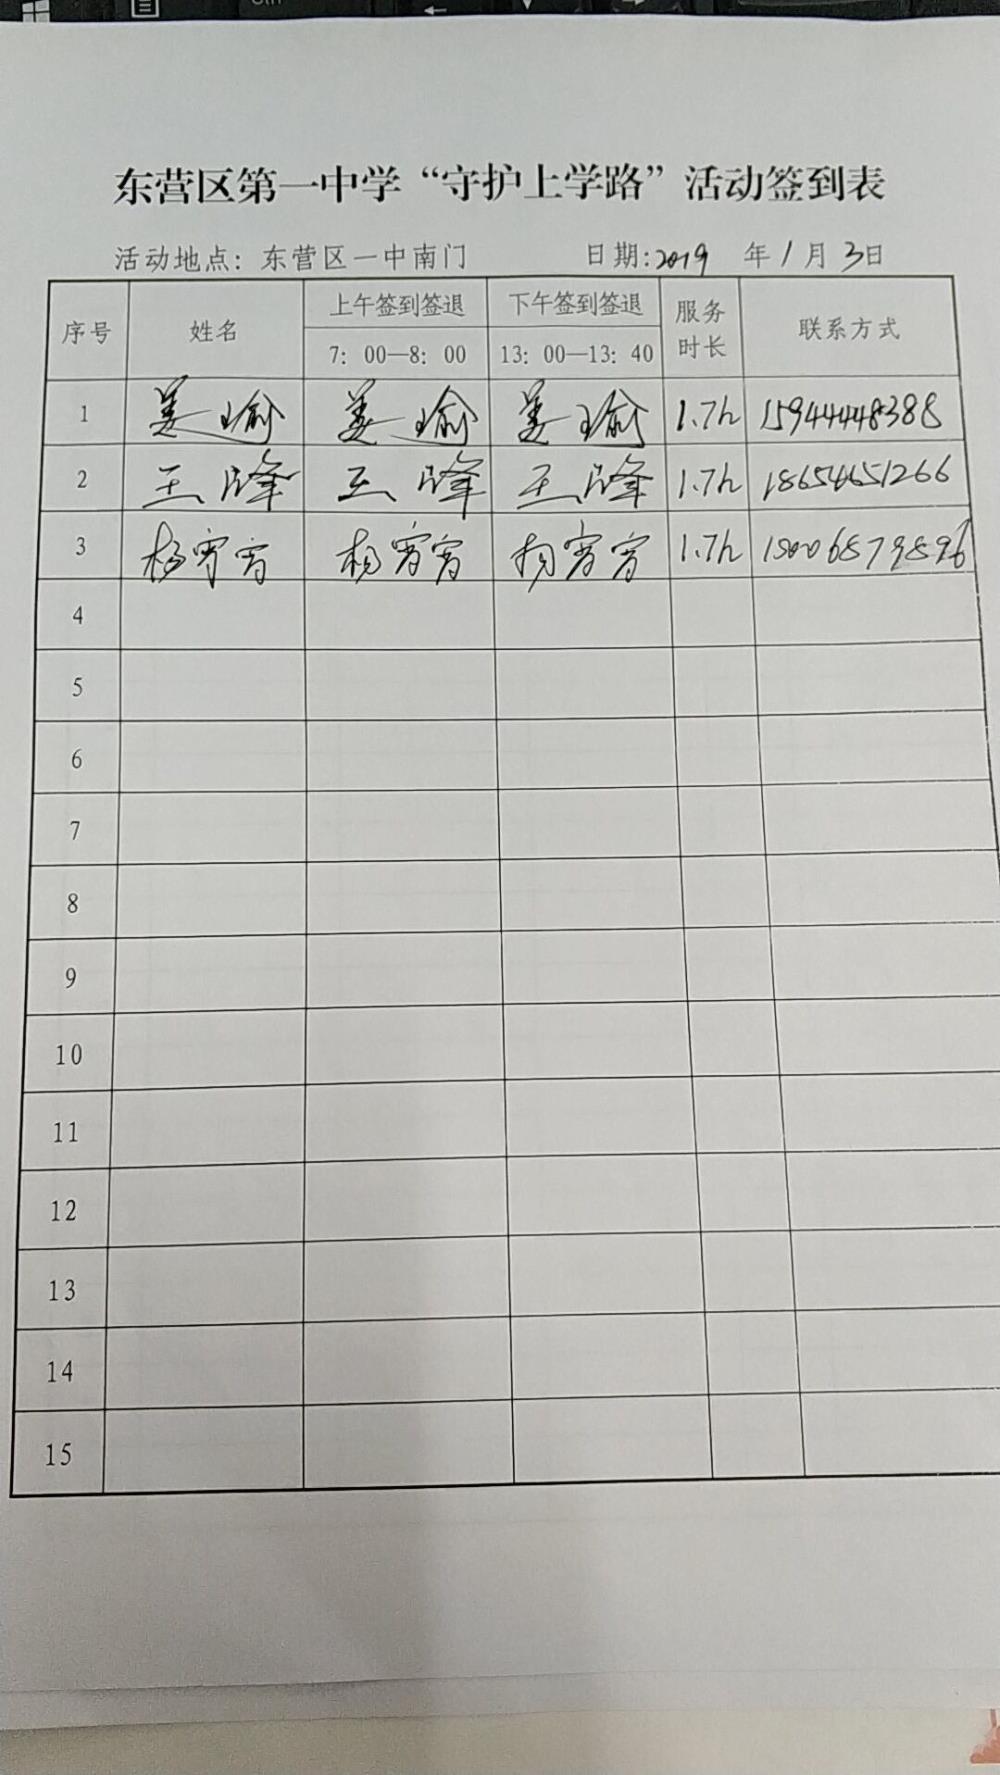 东营区第一中学“守护上学路”活动签到表
活动地点：东营区一中南门 日期:2019 年 1 月 3 日
序号 姓名 上午签到签退 下午签到签退 服务时长 联系方式
7：00—8：00 13：00—13：40
1 姜瑜 姜瑜 姜瑜 1.7h 15944448388
2 王峰 王峰 王峰 1.7h 18654651266
3 杨 杨 杨 1.7h
4
5
6
7
8
9
10
11
12
13
14
15